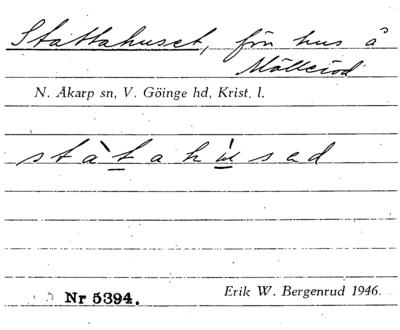 Stattahuset, förr hus å
Mölleröd
N. Åkarp sn, V. Göinge hd, Krist. l.
stàtahùsəd
Nr 5394.
Erik W. Bergenrud 1946.